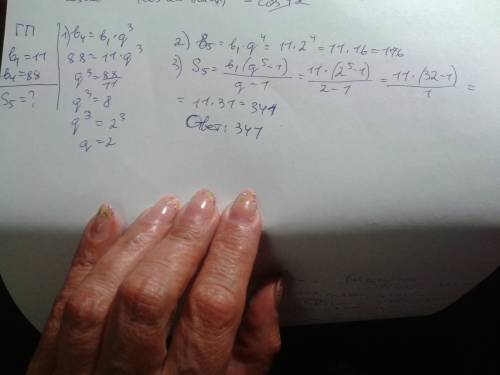 ГП
b₁=11
b₄=88
S₅=?
1) b₄=b₁·q³
88=11·q³
q³=88/11
q³=8
q³=2³
q=2
2) B₅=b₁·q⁴=11·2⁴=11·16=196
3) S₅=b₁(q⁵-1)/q-1=11·(2⁵-1)/2-1=11·(32-1)/1=
=11·31=341
Ответ: 341